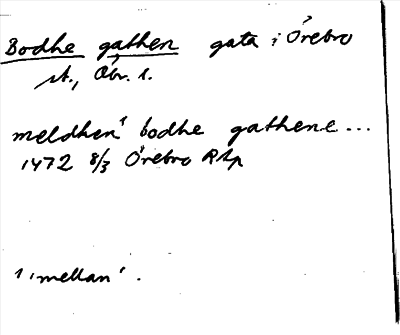 Bodhe gathen gata i Örebro
st., Öbr. l.
meldhen¹ bodhe gathene...
1472 8/3 Örebro RAp
¹ 'mellan'.